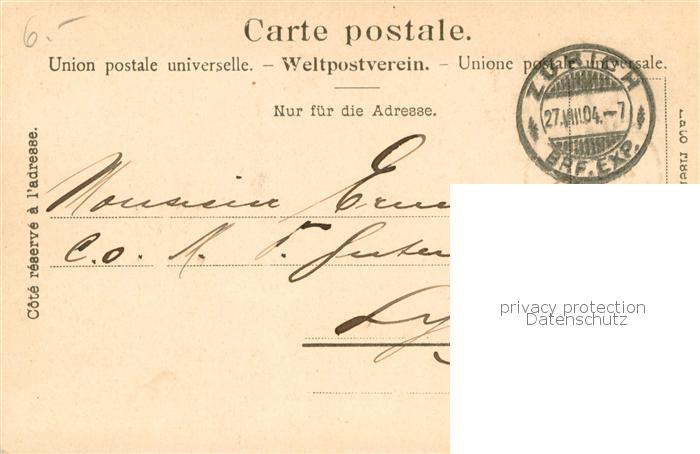 6.-
Carte postale.
Union postale universelle. – Weltpostverein. – Unione postale universale.
Nur für die Adresse.
Côté réservé à l'adresse.
ZÜRICH
27.VIII.04.–7
BRF. EXP.
Monsieur
C.o. M. F.
privacy protection
Datenschutz